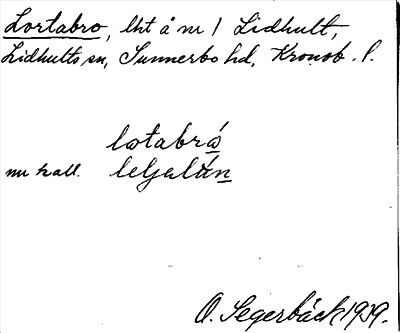 Lortabro, lht å nr 1 Lidhult,
Lidhults sn, Sunnerbo hd, Kronob. l.
lotabrå
nu kall. leljalán
O. Segerbäck 1939.